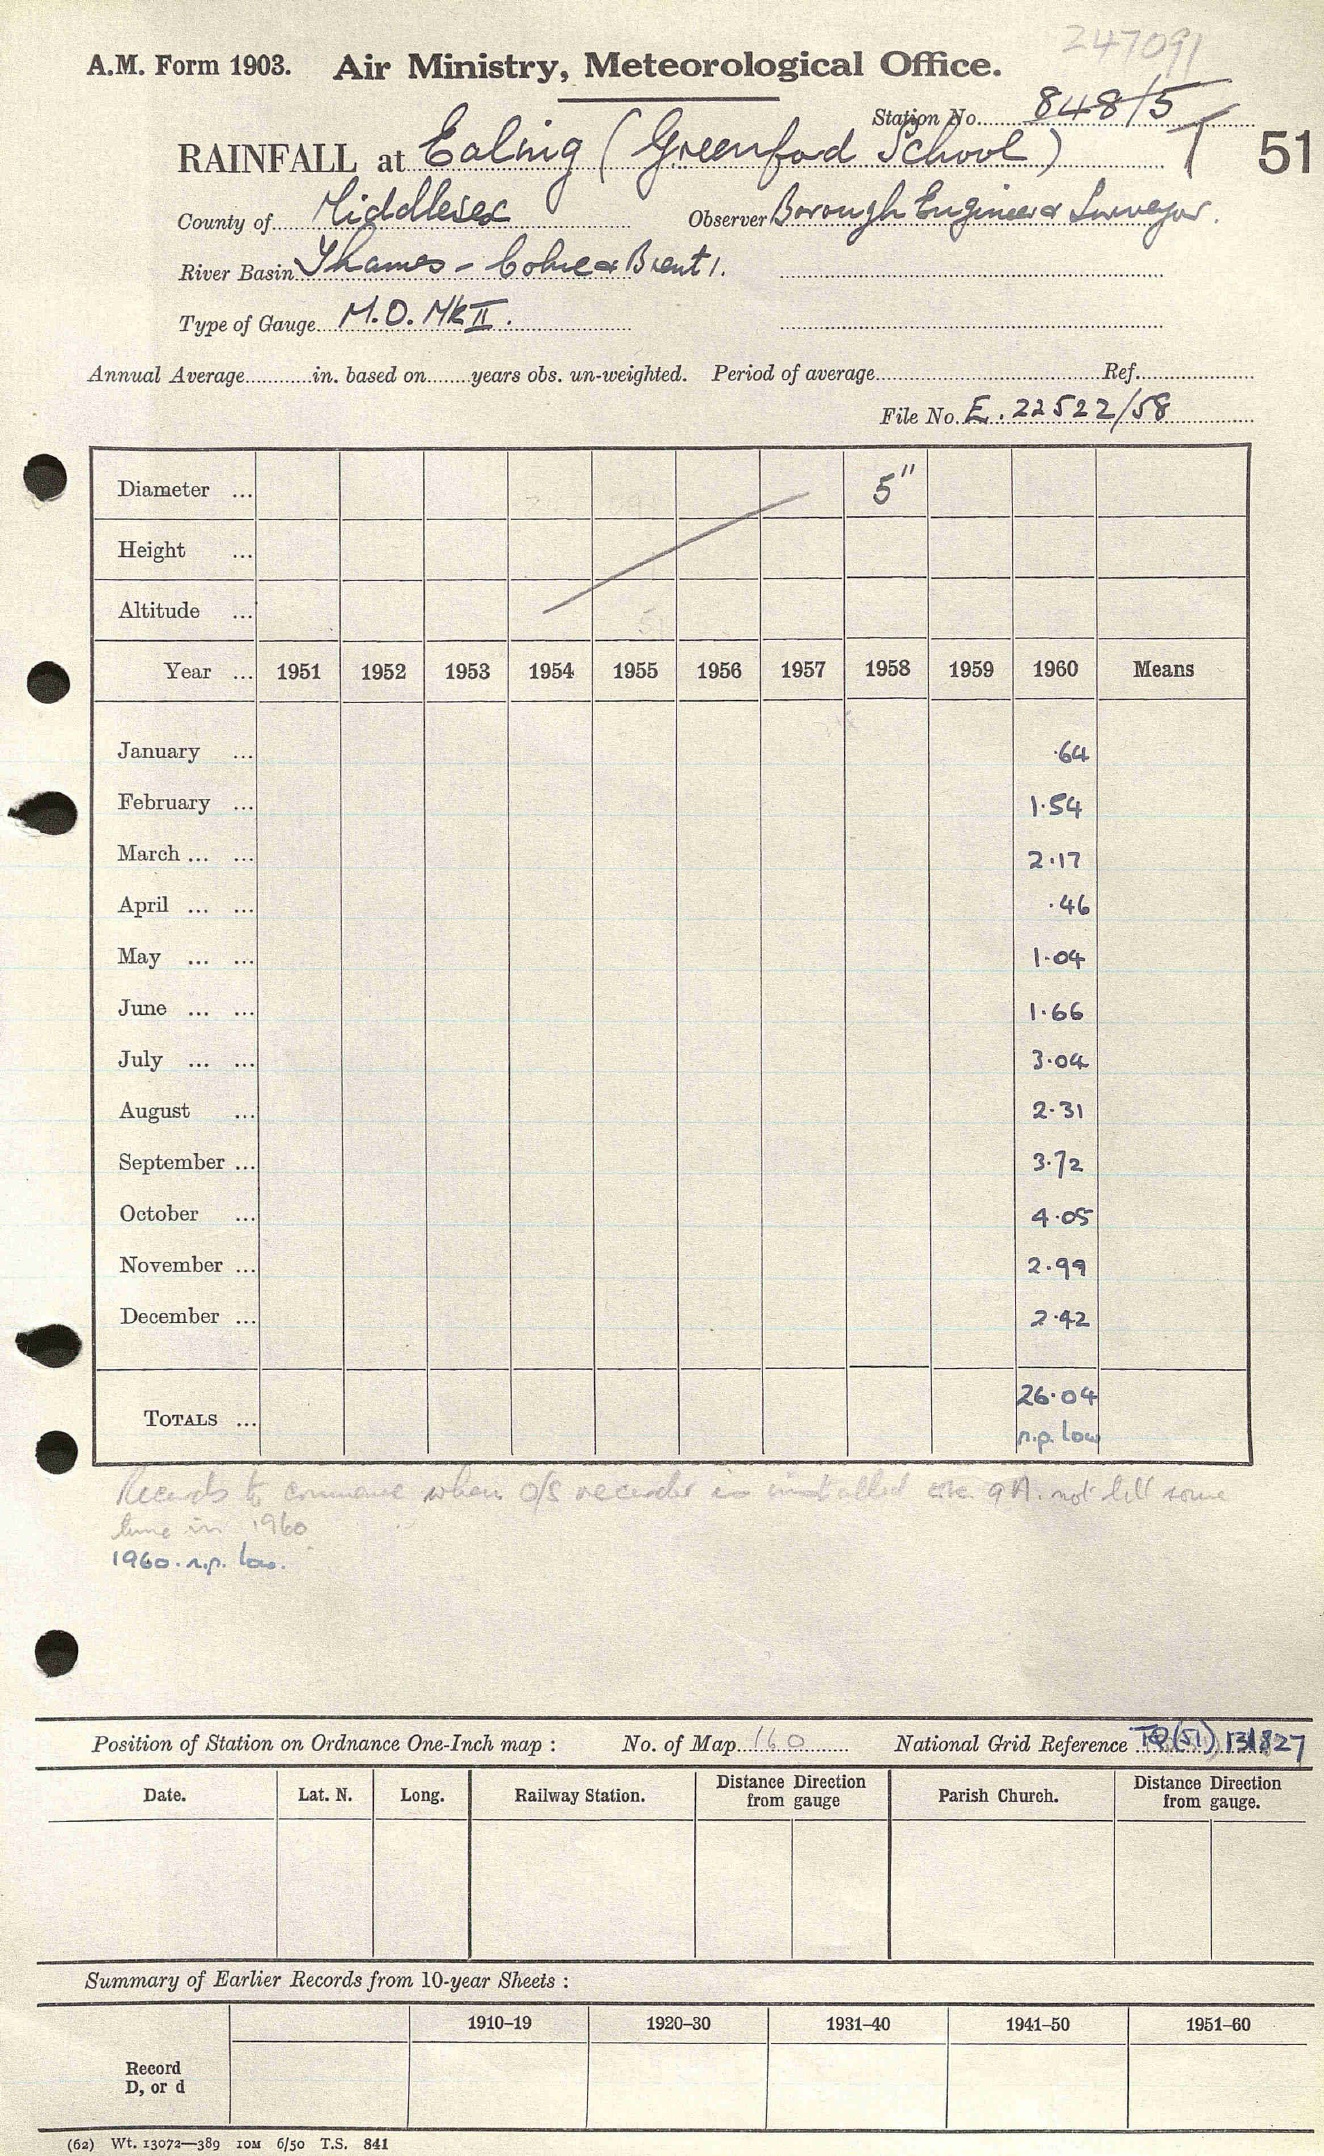 247091
A.M. Form 1903. Air Ministry, Meteorological Office.
Station No. 848/5
RAINFALL at Ealing (Greenford School) T 51
County of Middlesex Observer Borough Engineer & Surveyor.
River Basin Thames - Colne & Brent 1.
Type of Gauge M.O. Mk II.
Annual Average in. based on years obs. un-weighted. Period of average Ref.
File No. E. 22522/58
Diameter ... 5"
Height ...
Altitude ...
Year ... 1951 1952 1953 1954 1955 1956 1957 1958 1959 1960 Means
January ... ·64
February ... 1·54
March ... ... 2·17
April ... ... ·46
May ... ... 1·04
June ... ... 1·66
July ... ... 3·04
August ... 2·31
September ... 3·72
October ... 4·05
November ... 2·99
December ... 2·42
TOTALS ... 26·04
n.p. low
Records to commence when O/S recorder is installed not till some
time in 1960
1960. n.p. low.
Position of Station on Ordnance One-Inch map : No. of Map 160 National Grid Reference TQ(51) 131827
Date. Lat. N. Long. Railway Station. Distance Direction from gauge Parish Church. Distance Direction from gauge.
Summary of Earlier Records from 10-year Sheets :
1910–19 1920–30 1931–40 1941–50 1951–60
Record
D, or d
(62) Wt. 13072—389 10M 6/50 T.S. 841